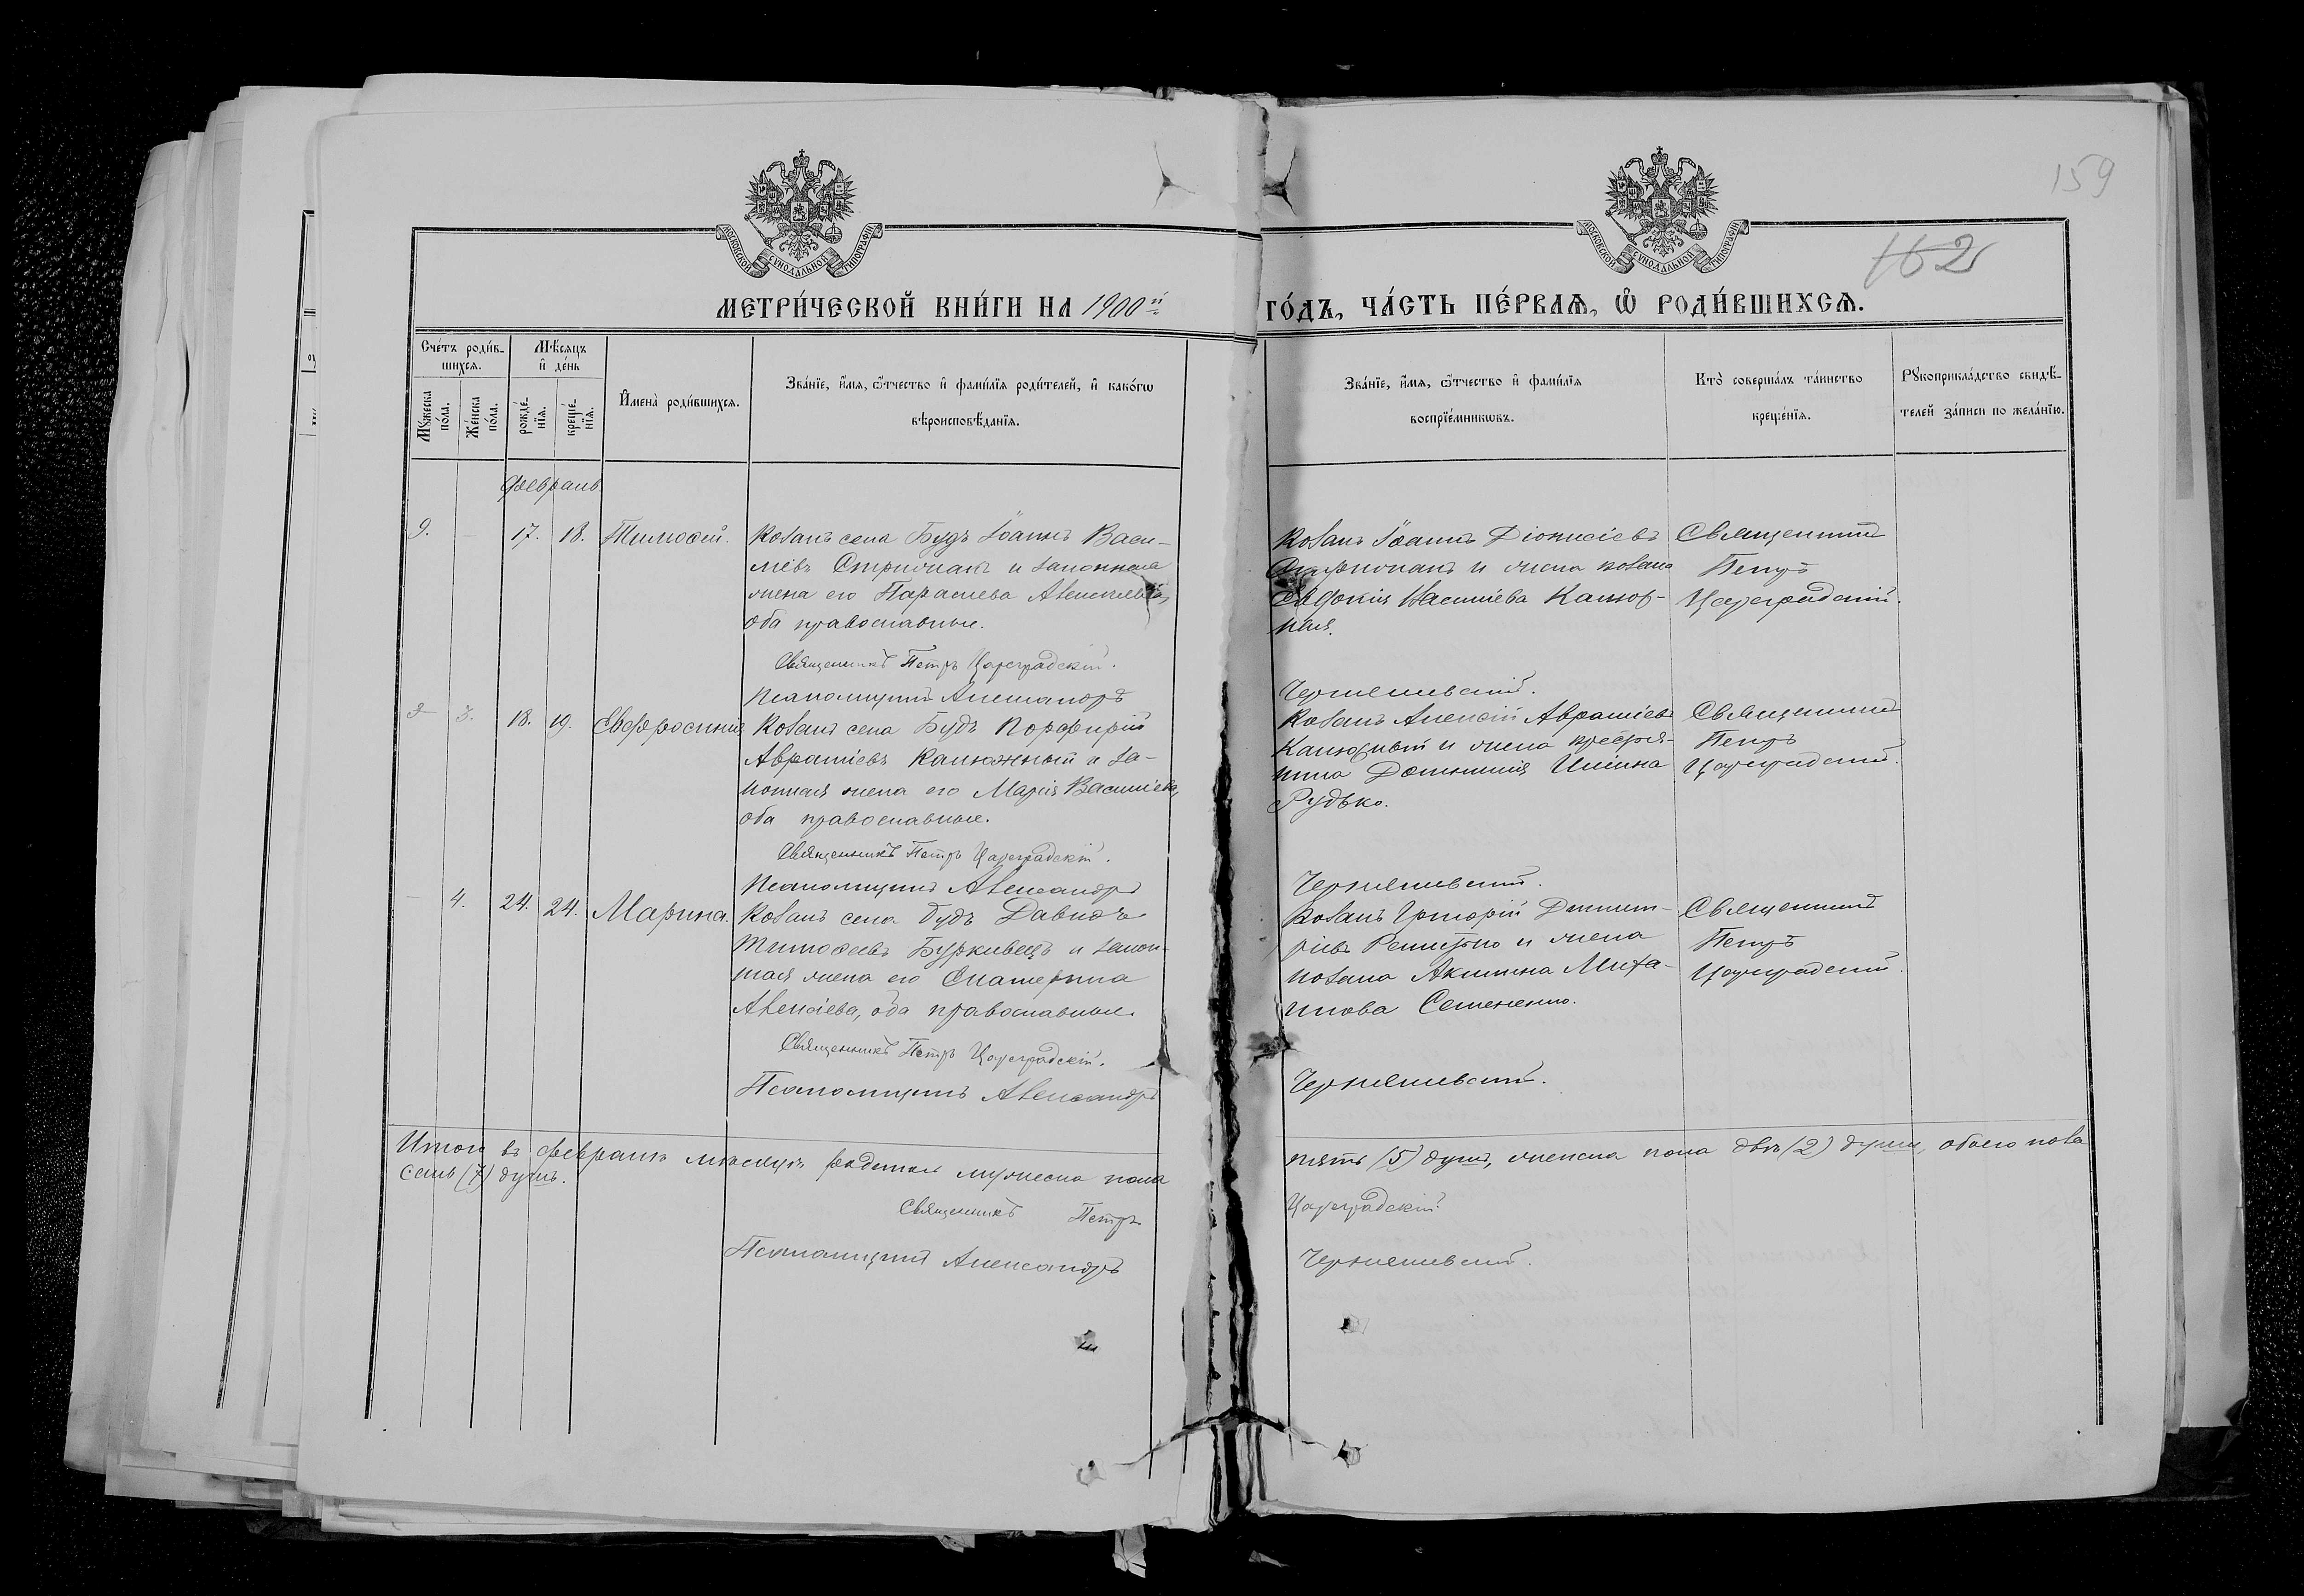 159
162
МОСКОВСКОЙ СѴНОДАЛЬНОЙ ТИПОГРАФІИ
МОСКОВСКОЙ СѴНОДАЛЬНОЙ ТИПОГРАФІИ
МЕТРИ́ЧЕСКОЙ КНИ́ГИ НА 1900й ГО́ДЪ, ЧА́СТЬ ПЕ́РВАѦ, Ѿ РОДИ́ВШИХСѦ.
Сче́тъ роди́в-
шихсѧ.
Мѣ́сѧцъ
и҆ де́нь
Мꙋ́жеска
по́ла.
Же́нска
по́ла.
рожде́-
нїѧ.
креще́-
нїѧ.
И҆мена̀ роди́вшихсѧ.
Зва́нїе, и҆́мѧ, ѻ҆́тчество и҆ фами́лїѧ роди́телей, и҆ како́гѡ
вѣроисповѣ́данїѧ.
Зва́нїе, и҆́мѧ, ѻ҆́тчество и҆ фами́лїѧ
воспрїе́мникѡвъ.
Кто̀ соверша́лъ та́инство
креще́нїѧ.
Рꙋкоприкла́дство свидѣ́-
телей за́писи по жела́нїю.
Февраль
9. - 17. 18. Тимоѳей.
Козакъ села Будъ Іоаннъ Васи-
льевъ и законная
жена его Параскева
оба православные.
Священникъ Петръ Цареградскій.
Псаломщикъ Александръ
Козакъ Іоаннъ Діонисіевъ
и жена козака
Евдокія Василіева Калюж-
ная.
Чернявскій.
Священникъ
Петръ
Цареградскій.
3. 18. 19. Евфросинія
Козакъ села Будъ Порфирій
Авраміевъ Калюжный и за-
конная жена его Марія Василіева,
оба православные.
Священникъ Петръ Цареградскій.
Псаломщикъ Александръ
Козакъ Алексій Авраміевъ
Калюжный и жена крестья-
нина Домникія
Рудько.
Священникъ
Петръ
Цареградскій.
- 4. 24. 24. Марина.
Козакъ села Будъ Давидъ
Тимоѳеевъ Буркивецъ и закон-
ная жена его Екатерина
Алексіева, оба православные.
Священникъ Петръ Цареградскій.
Псаломщикъ Александръ
Козакъ Григорій Димит-
ріевъ и жена
козака Акилина Миха-
илова Семененко.
Священникъ
Петръ
Цареградскій.
Итого въ февралѣ мѣсяцѣ родилось мужеска пола пять (5) душъ, женска пола двѣ (2) души, обоего пола
семь (7) душъ.
Священникъ Петръ Цареградскій.
Псаломщикъ Александръ